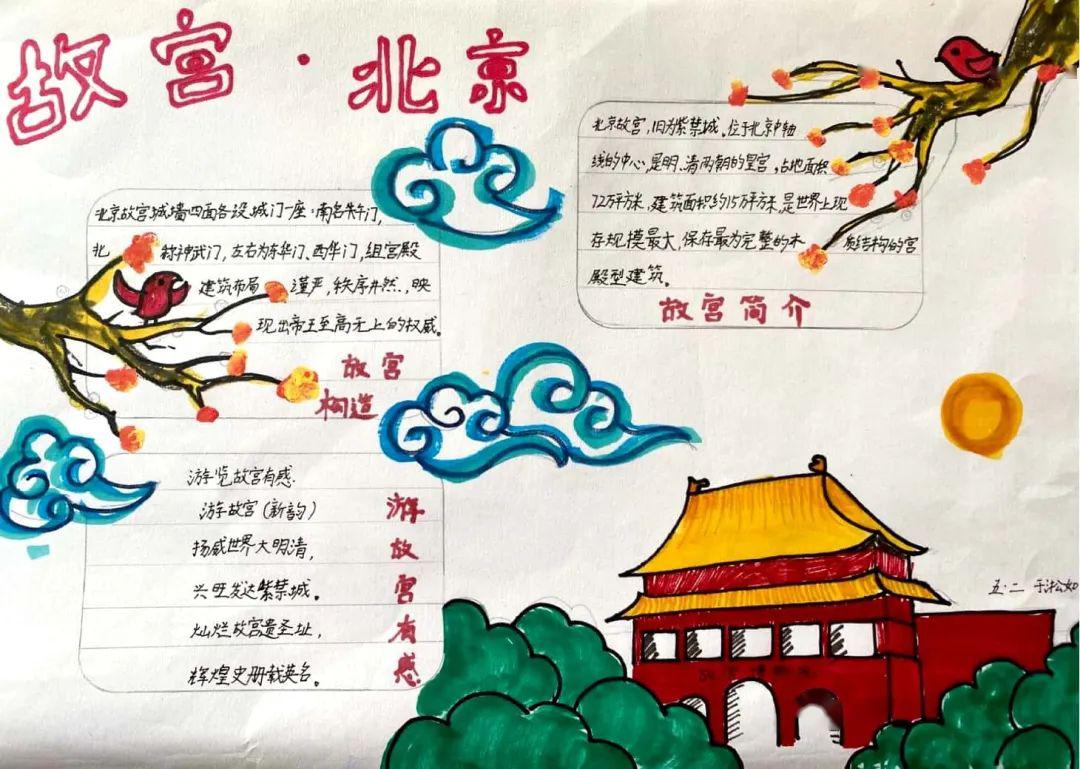 故宫·北京
北京故宫,旧为紫禁城。位于北京中轴
线的中心,是明、清两朝的皇宫,占地面积
72万平方米,建筑面积约15万平方米,是世界上现
存规模最大,保存最为完整的木质结构的宫
殿型建筑。
故宫简介
北京故宫城墙四面各设城门一座:南名午门,
北称神武门,左右为东华门、西华门,组宫殿
建筑布局谨严,秩序井然,映
现出帝王至高无上的权威。
故宫
构造
游览故宫有感.
游故宫(新韵)
扬威世界大明清,
兴旺发达紫禁城。
灿烂故宫遗圣址,
辉煌史册载英名。
游故宫有感
五·二 于淞如